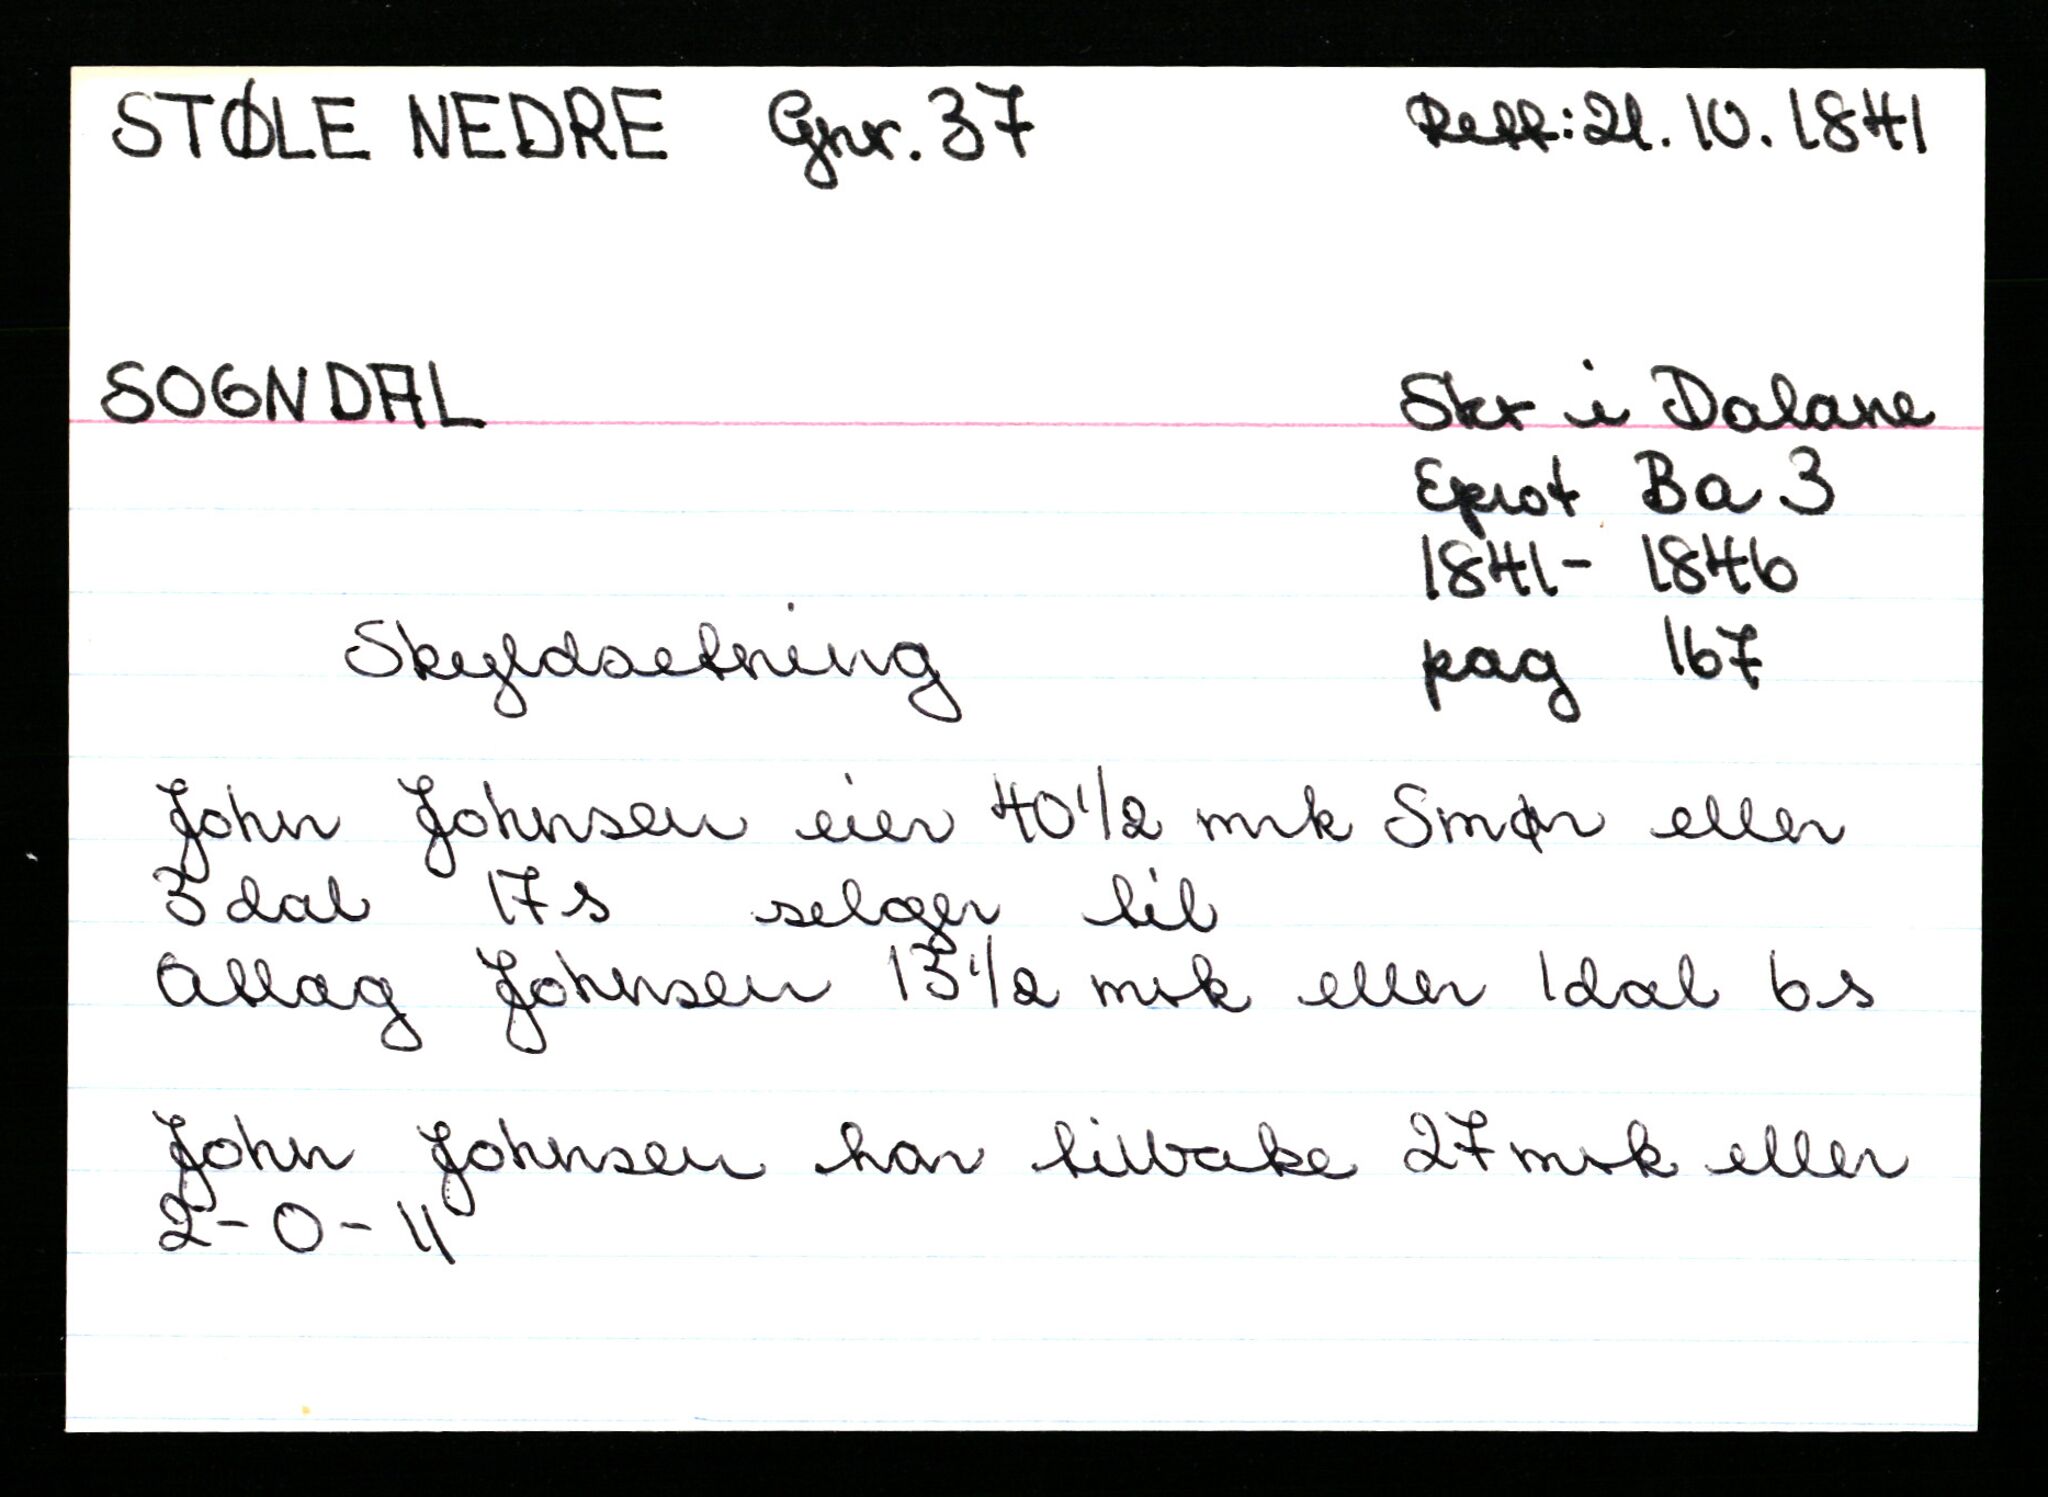 STØLE NEDRE Gnr. 37 Reff: 21. 10. 1841
SOGNDAL Skr i Dalane
Eprot Ba 3
1841 - 1846
Skyldsetning pag 167
John Johnsen eier 40 1/2 mrk Smør eller
3 dal 17 s selger til
Atlag Johnsen 13 1/2 mrk eller 1 dal 6 s
John Johnsen har tilbake 27 mrk eller
2 - 0 - 11